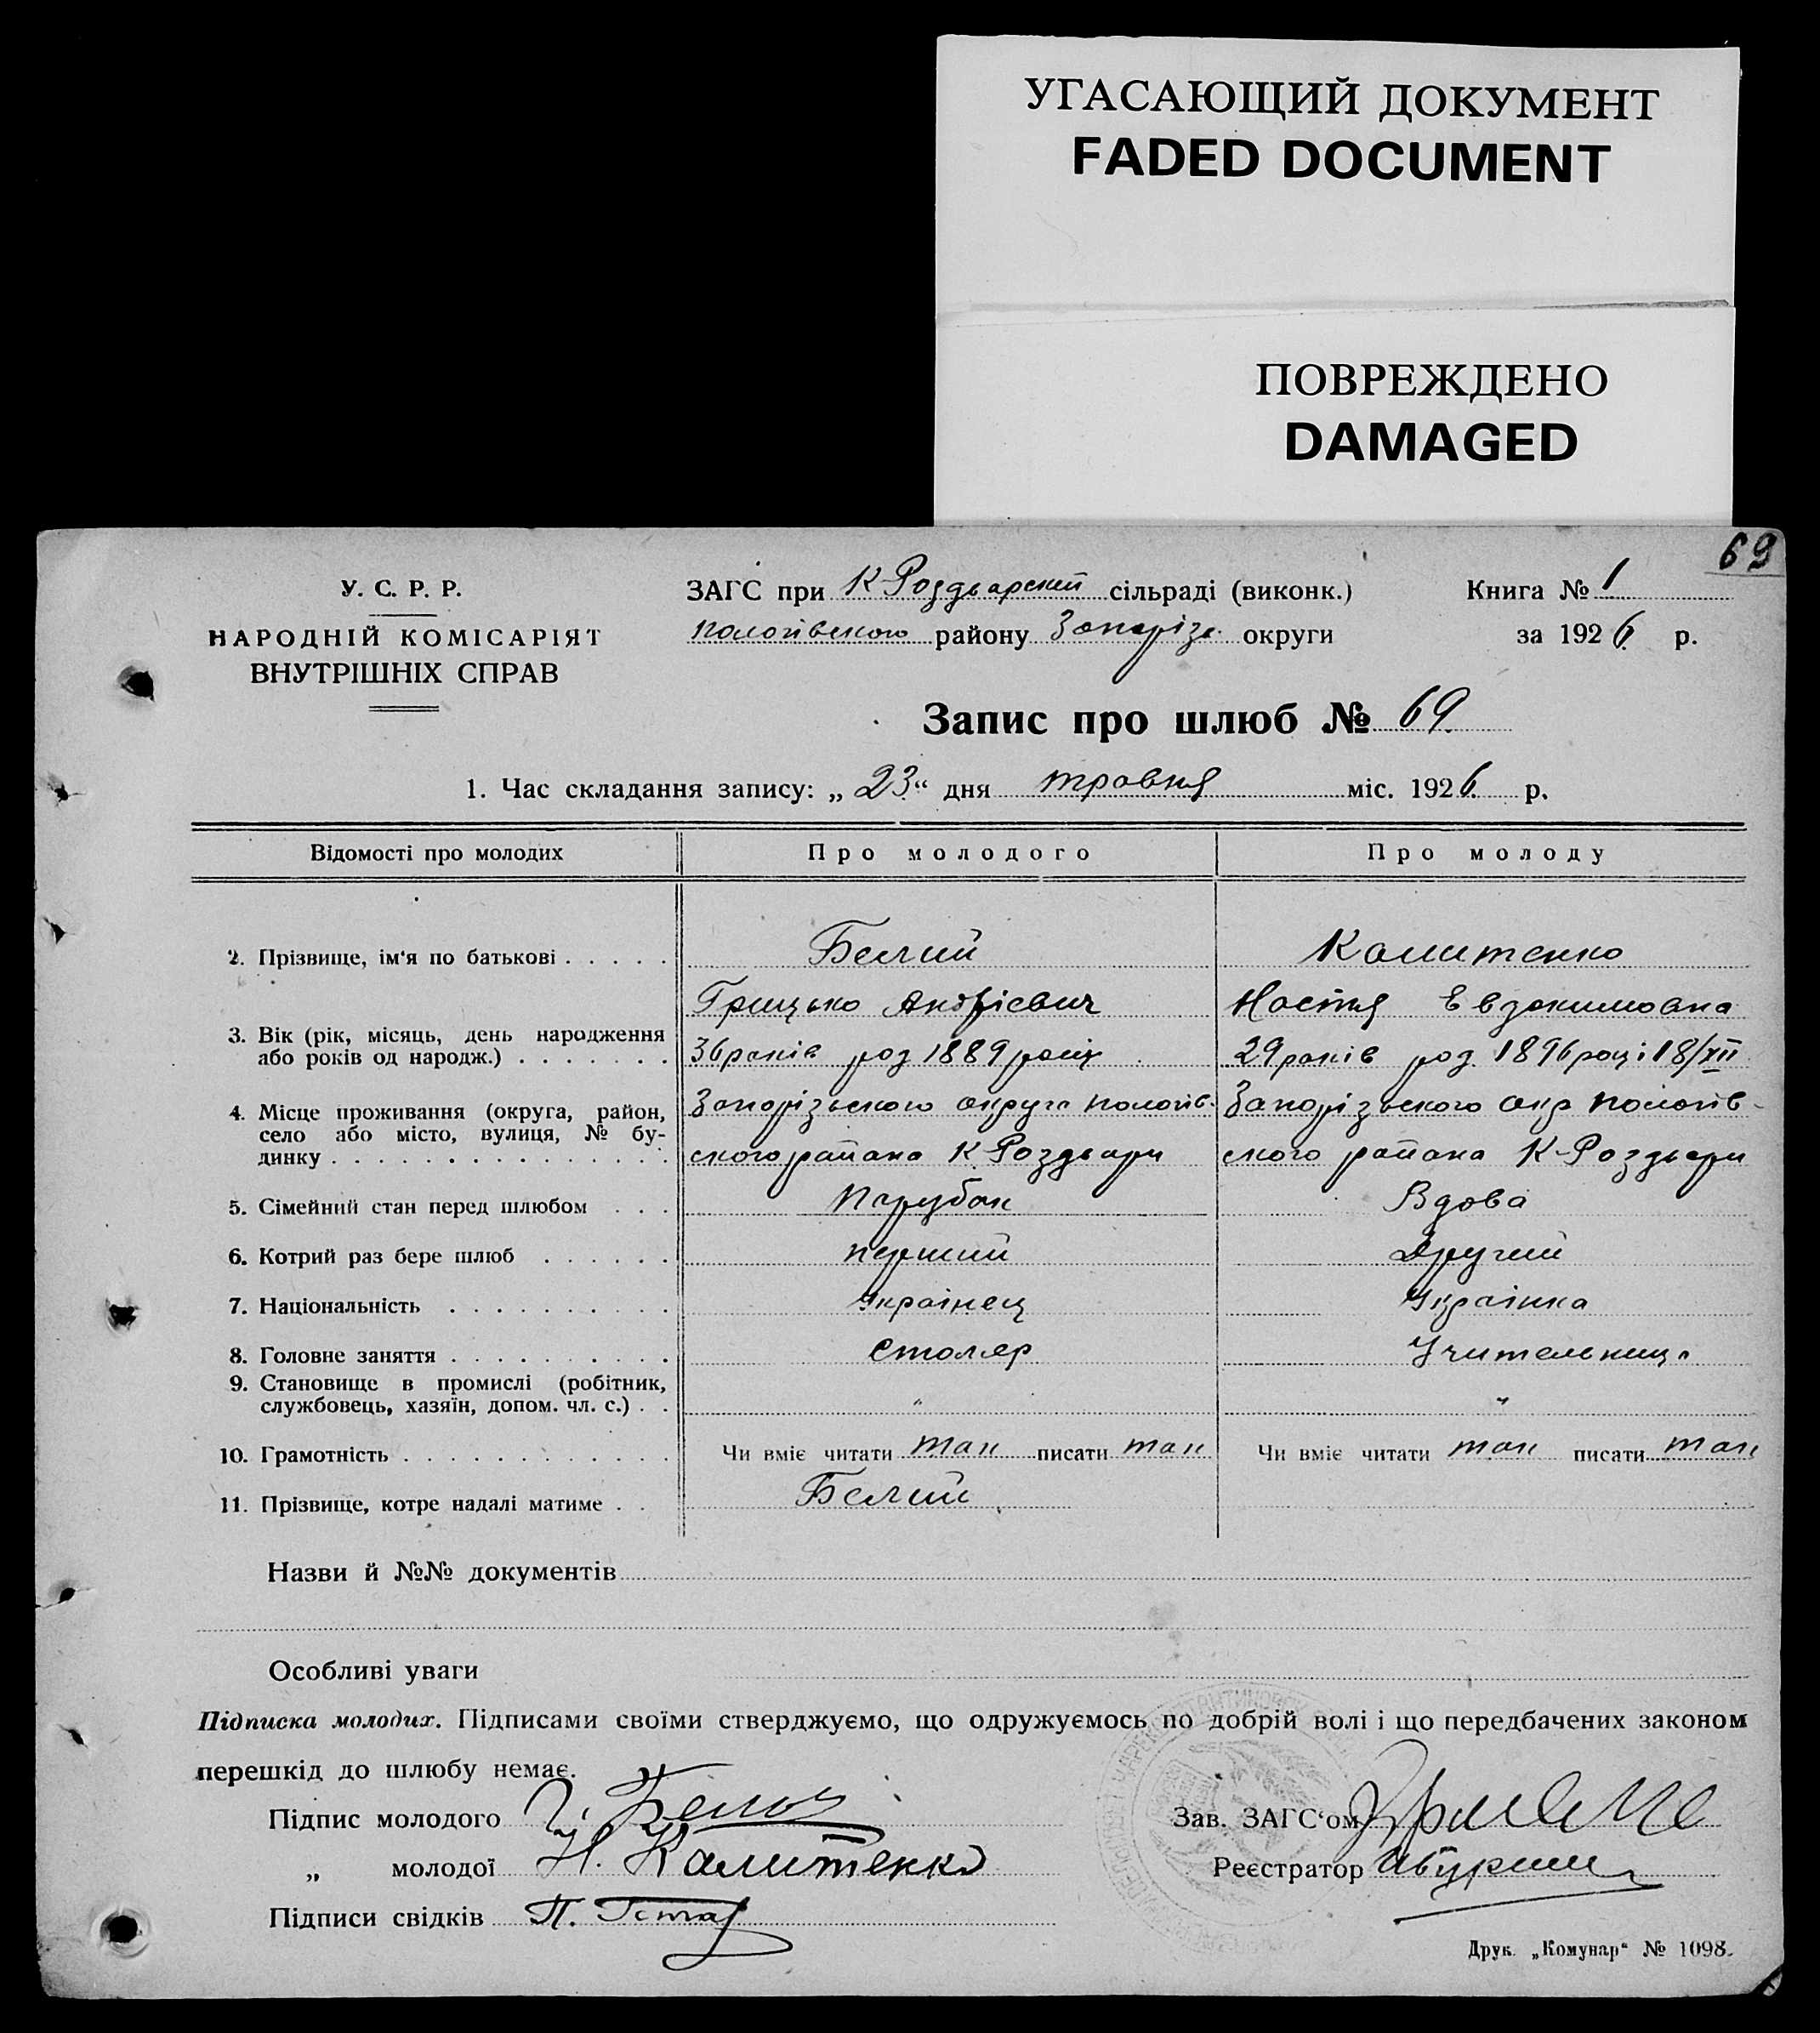 УГАСАЮЩИЙ ДОКУМЕНТ
FADED DOCUMENT
ПОВРЕЖДЕНО
DAMAGED
69
У. С. Р. Р.
НАРОДНІЙ КОМІСАРІЯТ
ВНУТРІШНІХ СПРАВ
ЗАГС при К-Роздьарский сільраді (виконк.)
пологівського району Запоріз. округи
Книга № 1
за 1926 р.
Запис про шлюб № 69.
1. Час складання запису: „23“ дня травня міс. 1926. р.
Відомості про молодих Про молодого Про молоду
2. Прізвище, ім'я по батькові . . . . . Белий Калитенко
Грицько Андрієвич Настя Евдокимовна
3. Вік (рік, місяць, день народження
або років од народж.) . . . . . . . 36 років род 1889 році 29 років род. 1896 році 18/XII
4. Місце проживання (округа, район, Запорізьского округа пологів- Запорізьского окр пологів-
село або місто, вулиця, № бу-
динку . . . . . . . . . . . . . . . ского района К-Роздьари ского района К-Роздьари
5. Сімейний стан перед шлюбом . . . Парубок Вдова
6. Котрий раз бере шлюб . . . . . . перший Другий
7. Національність . . . . . . . . . . Українец Українка
8. Головне заняття . . . . . . . . . . Столяр Учительница
9. Становище в промислі (робітник,
службовець, хазяїн, допом. чл. с.) . . " "
10. Грамотність . . . . . . . . . . . . Чи вміє читати так писати так Чи вміє читати так писати так
11. Прізвище, котре надалі матиме . . Белий
Назви й №№ документів
Особливі уваги
Підписка молодих. Підписами своїми стверджуємо, що одружуємось по добрій волі і що передбачених законом
перешкід до шлюбу немає.
Підпис молодого Г. Белый
„ молодої Н. Калитенко
Підписи свідків П.
Зав. ЗАГС'ом
Реєстратор
Друк. „Комунар“ № 1098.